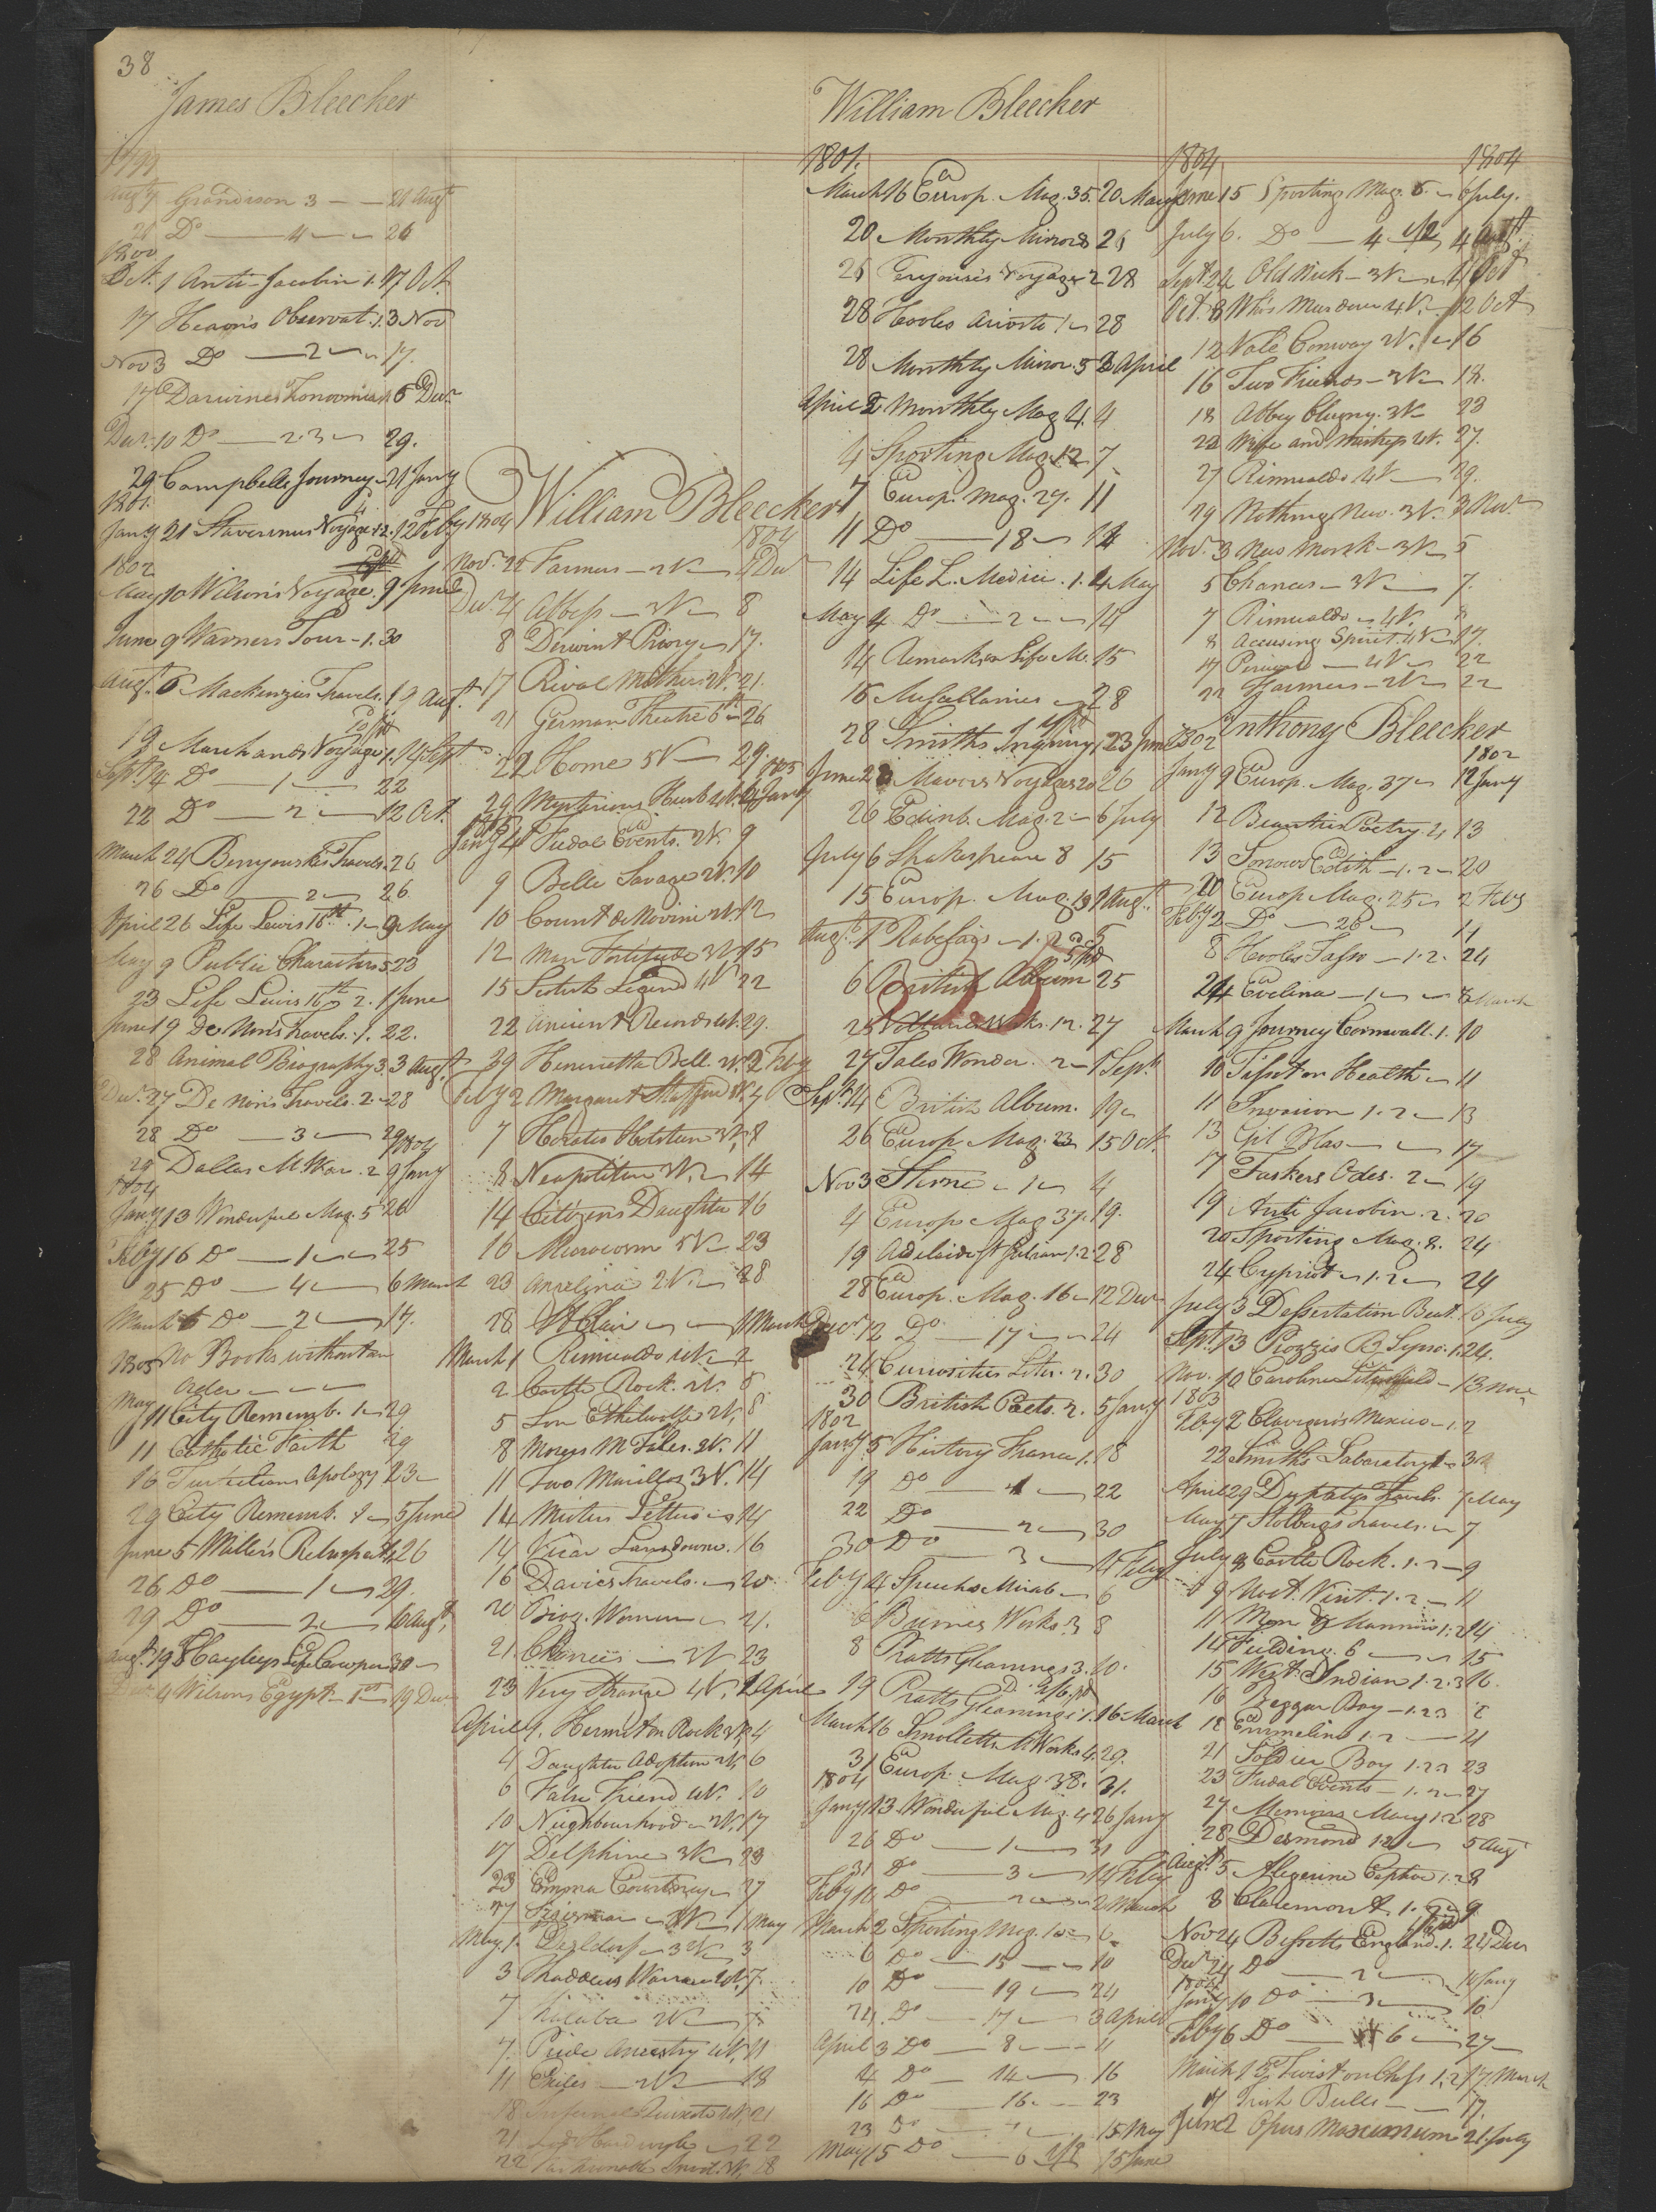 38
James Bleecker
1799
Augt 7 Grandison 3 21 Augt
21 Do 4 26
1800
Oct. 1 Anti-Jacobin 1. 17 Oct
17 Hearn's Observat. 1. 3 Nov
Nov 3 Do 2 17.
17 Darwines Zonoomia 1 6 Decr
Decr. 10 Do 2.3 29.
29 Campbells Journey 21 Jany
1801
Jany 21 Stavorinus Voyage 1.2. 12 Feby
1802
May 10 Wilson's Voyage. 9 June
June 9 Warners Tour - 1. 30
Augt. 6 Mackenzies Travels. 19 Augt.
19 Marchands Voyage 1. 14 Sept
Sept. 14 Do 1 22
22 Do 2 12 Oct.
March 24 Benyouskis Travels. 26
26 Do 2 26
April 26 Life Lewis 16th. 1 9 May
May 9 Public Characters 5 23
23 Life Lewis 16th 2. 1 June
June 19 De Nons Travels. 1. 22.
28 Animal Biography 3. 3 Augt
Decr. 27 De Nons Travels. 2 28
28 Do 3 29
29 Dallas M War. 2 9 Jany 1804
1804
Jany 13 Wonderful Mag. 5 26
Feby 16 Do 1 25
25 Do 4 6 March
March 6 Do 2 17.
1805 No Books without an
order
May 11 City Rememb. 1 29
11 Catholic Faith 29
16 Turtelians Apology 23
29 City Rememb. 2 5 June
June 5 Miller's Retrospect 26
26 Do 1 29.
29 Do 2 16 Augt.
Augt. 19 Hayleys Life Cowper 30
Decr 4 Wilsons Egypt 1st 19 Decr
William Bleecker
1804
Nov. 22 Farmers 2V 4 Decr
Decr. 4 Abbess 3V 8
8 Derwent Priory 17.
17 Rival Mothers 2V. 21.
21 German Theatre 6th 26
22 Home 5V 29.
29 Mysterious Husb 4V. 4 Jany 1805
1805
Jany 4 Fudal Events. 2V. 9
9 Belle Savage 2V. 10
10 Count de Novini 2V. 12
12 Man Fortitude 3V 15
15 Scotch Legend 4V 22
22 Ancient Records 4V. 29.
29 Henrietta Bell. 2V. 2 Feby
Feby 2 Margaret Strafford 5V. 7
7 Horatio Holstein 3V. 8
8 Neapolitan 3V. 14
14 Citizens Daughter 16
16 Microcosm 5V 23
23 Angelina 2V. 28
28 St Clair 1 March
March 1 Rimualdo 4V. 2
2 Castle Rock. 2V. 5
5 Son Ethelwolfe 2V, 8
8 Monys M Tales. 2V. 11
11 Two Marillos 3V. 14
14 Misters Letters 14
14 Vicar Lansdowne. 16
16 Davies Travels. 20
20 Biog. Women 21.
21. Chances 3V 23
23 Very Strange 4V. 1 April
April 1. Hermit on Rock 3V. 4
4 Daughter Adoption 2V, 6
6 False Friend 4V. 10
10 Neighbourhood 2V, 17
17 Delphine 3V 23
23 Emma Courtney 27
May 1. 3V 3
3 Thaddeus Warsaw 4V. 7.
7 Thalaba 2V 7
7. Pride Ancestry 4V, 11
11 Exiles 2V 18
William Bleecker
1801.
March 16 Europ. Mag. 35. 20 March
20 Monthly Mirror 8 26
26 28
28 Hooles Ariosto 1 28
28 Monthly Mirror. 5 2 April
April 2 Monthly Mag. 4. 4
4 Sporting Mag. 12 7
7 Europ. Mag. 27. 11
11 Do 18 14
14 Life L. Medici. 1. 4 May
May 4 Do 2 14
14 Remarks on Life M. 15
15 Miscellanies 28
28 Smiths Inquiry 1 23 June
June 23 Mavors Voyages 20 26
26 Edinb. Mag. 2 6 July
July 6 Shakespeare 8 15
15 Europ. Mag. 19 1 Augt.
Augt. 1 Rabelais 1. 2 6
6 British Album 25
25 Voltaires Works. 12. 27
27 Tales Wonder. 2 1 Sept.
Sept. 14 British Album. 19
26 Europ. Mag. 23 15 Oct.
Nov 3 Sterne 1 4
4 Europ Mag 37. 19.
19 Adelaide St Julian 1.2 28
28 Europ. Mag. 16 12 Decr
Decr. 12 Do 17 24
24 Curiosities Liter. 2. 30
30 British Poets. 2. 5 Jany
1802
Jany. 5 History France 1. 18
19 Do 1 22
22 Do 2 30
30 Do 3 4 Feby
Feby 4 Speeches Mirab 6
6 Burnes Works. 3 8
8 Pratts Gleanings 3. 10.
19 Pratts Gleanings 1. 16 March
March 16 Smolletts M Works 4. 29.
31 Europ Mag 38. 31.
1804
Jany 13 Wonderful Mag. 4 26 Jany
26 Do 1 31
31 Do 3 14 Feby
Feby 14 Do 2 2 March
March 2 Sporting Mag. 10 6
6 Do 15 10
10 Do 19 24
24. Do 17 3 April
April 3 Do 8 4
4 Do 14 16
16 Do 16 23
23 Do 15 May
May 15 Do 6 15 June
1804
June 15 Sporting Mag. 5. 6 July.
July 6. Do 4 4 Augt.
Sept 22 Old Nick 3V 4 Oct
Oct. 8 Who's Murderer 4V. 12 Oct
12 Vale Conway 2V. 16
16 Two Friends 3V 18.
18 Abbey Clugny. 3V 23
22 Wife and Mistress 4V. 27.
27 Rimualdo 4V 29.
29 Nothing New. 3V. 3 Novr
Nov. 3 New Monk 3V 5
5 Chances 3V 7.
7 Rimualdo 4V. 8
8 Accusing Spirit. 4V 17.
17 Percival 4V 22
22 Farmers 2V 22
Anthony Bleecker
1802
Jany 9 Europ. Mag. 37 12 Jany
12 Beauties Poetry 2 13
13 Sorrows Edith 1.2 20
20 Europ Mag. 25 2 Feby
Feby 2 Do 26 4
8 Hooles Tasso 1.2. 24
24 Evelina 1 8 March
March 9 Journey Cornwall. 1. 10
10 Tissot on Health 11
11 Invasion 1.2 13
13 Gil Blas 17
17 Taskers Odes. 2 19
19 Anti Jacobin. 2. 20
20 Sporting Mag. 8. 24
24 Cypriot 1.2 24
July 3 Dessertation Beat. 10 July
Sept. 13 Piozzis B Syno. 1. 24.
Nov. 10 Caroline Litchfield 13 Nov
1803
Feby 2 Clavigero's Mexico 1. 2
22 Smiths Laboratory 1
April 29 Dupatys Travels. 7 May
May 7 Stolbergs Travels. 7
July 8 Castle Rock. 1. 2 9
9 Noct. Visit. 1. 2 11
11 Men & Manners 1.2 14
14 Fielding. 6 15
15 West Indian 1.2.3 16.
16 Beggar Boy 1.2.3 18
18 Emmeline 1.2 21
21 Soldier Boy 1.2.3 23
23 Fudal Events 1.2 27
27 Memoirs Mary 1.2 28
28 Desmond 1.2 5 Augt
Augt. 5 Algerine Captive 1.2 8
8 Claremont 1.2 9.
Nov 24 Bissetts England. 1. 24 Decr
Decr 24 Do 2 10 Jany
1804
Jany 10 Do 3 10
Feby 6 Do 6 27
March 15 Twist on Chess 1.2 17 March
17 Irish Bulls 17.
June 2 Opus Maximum 21 July